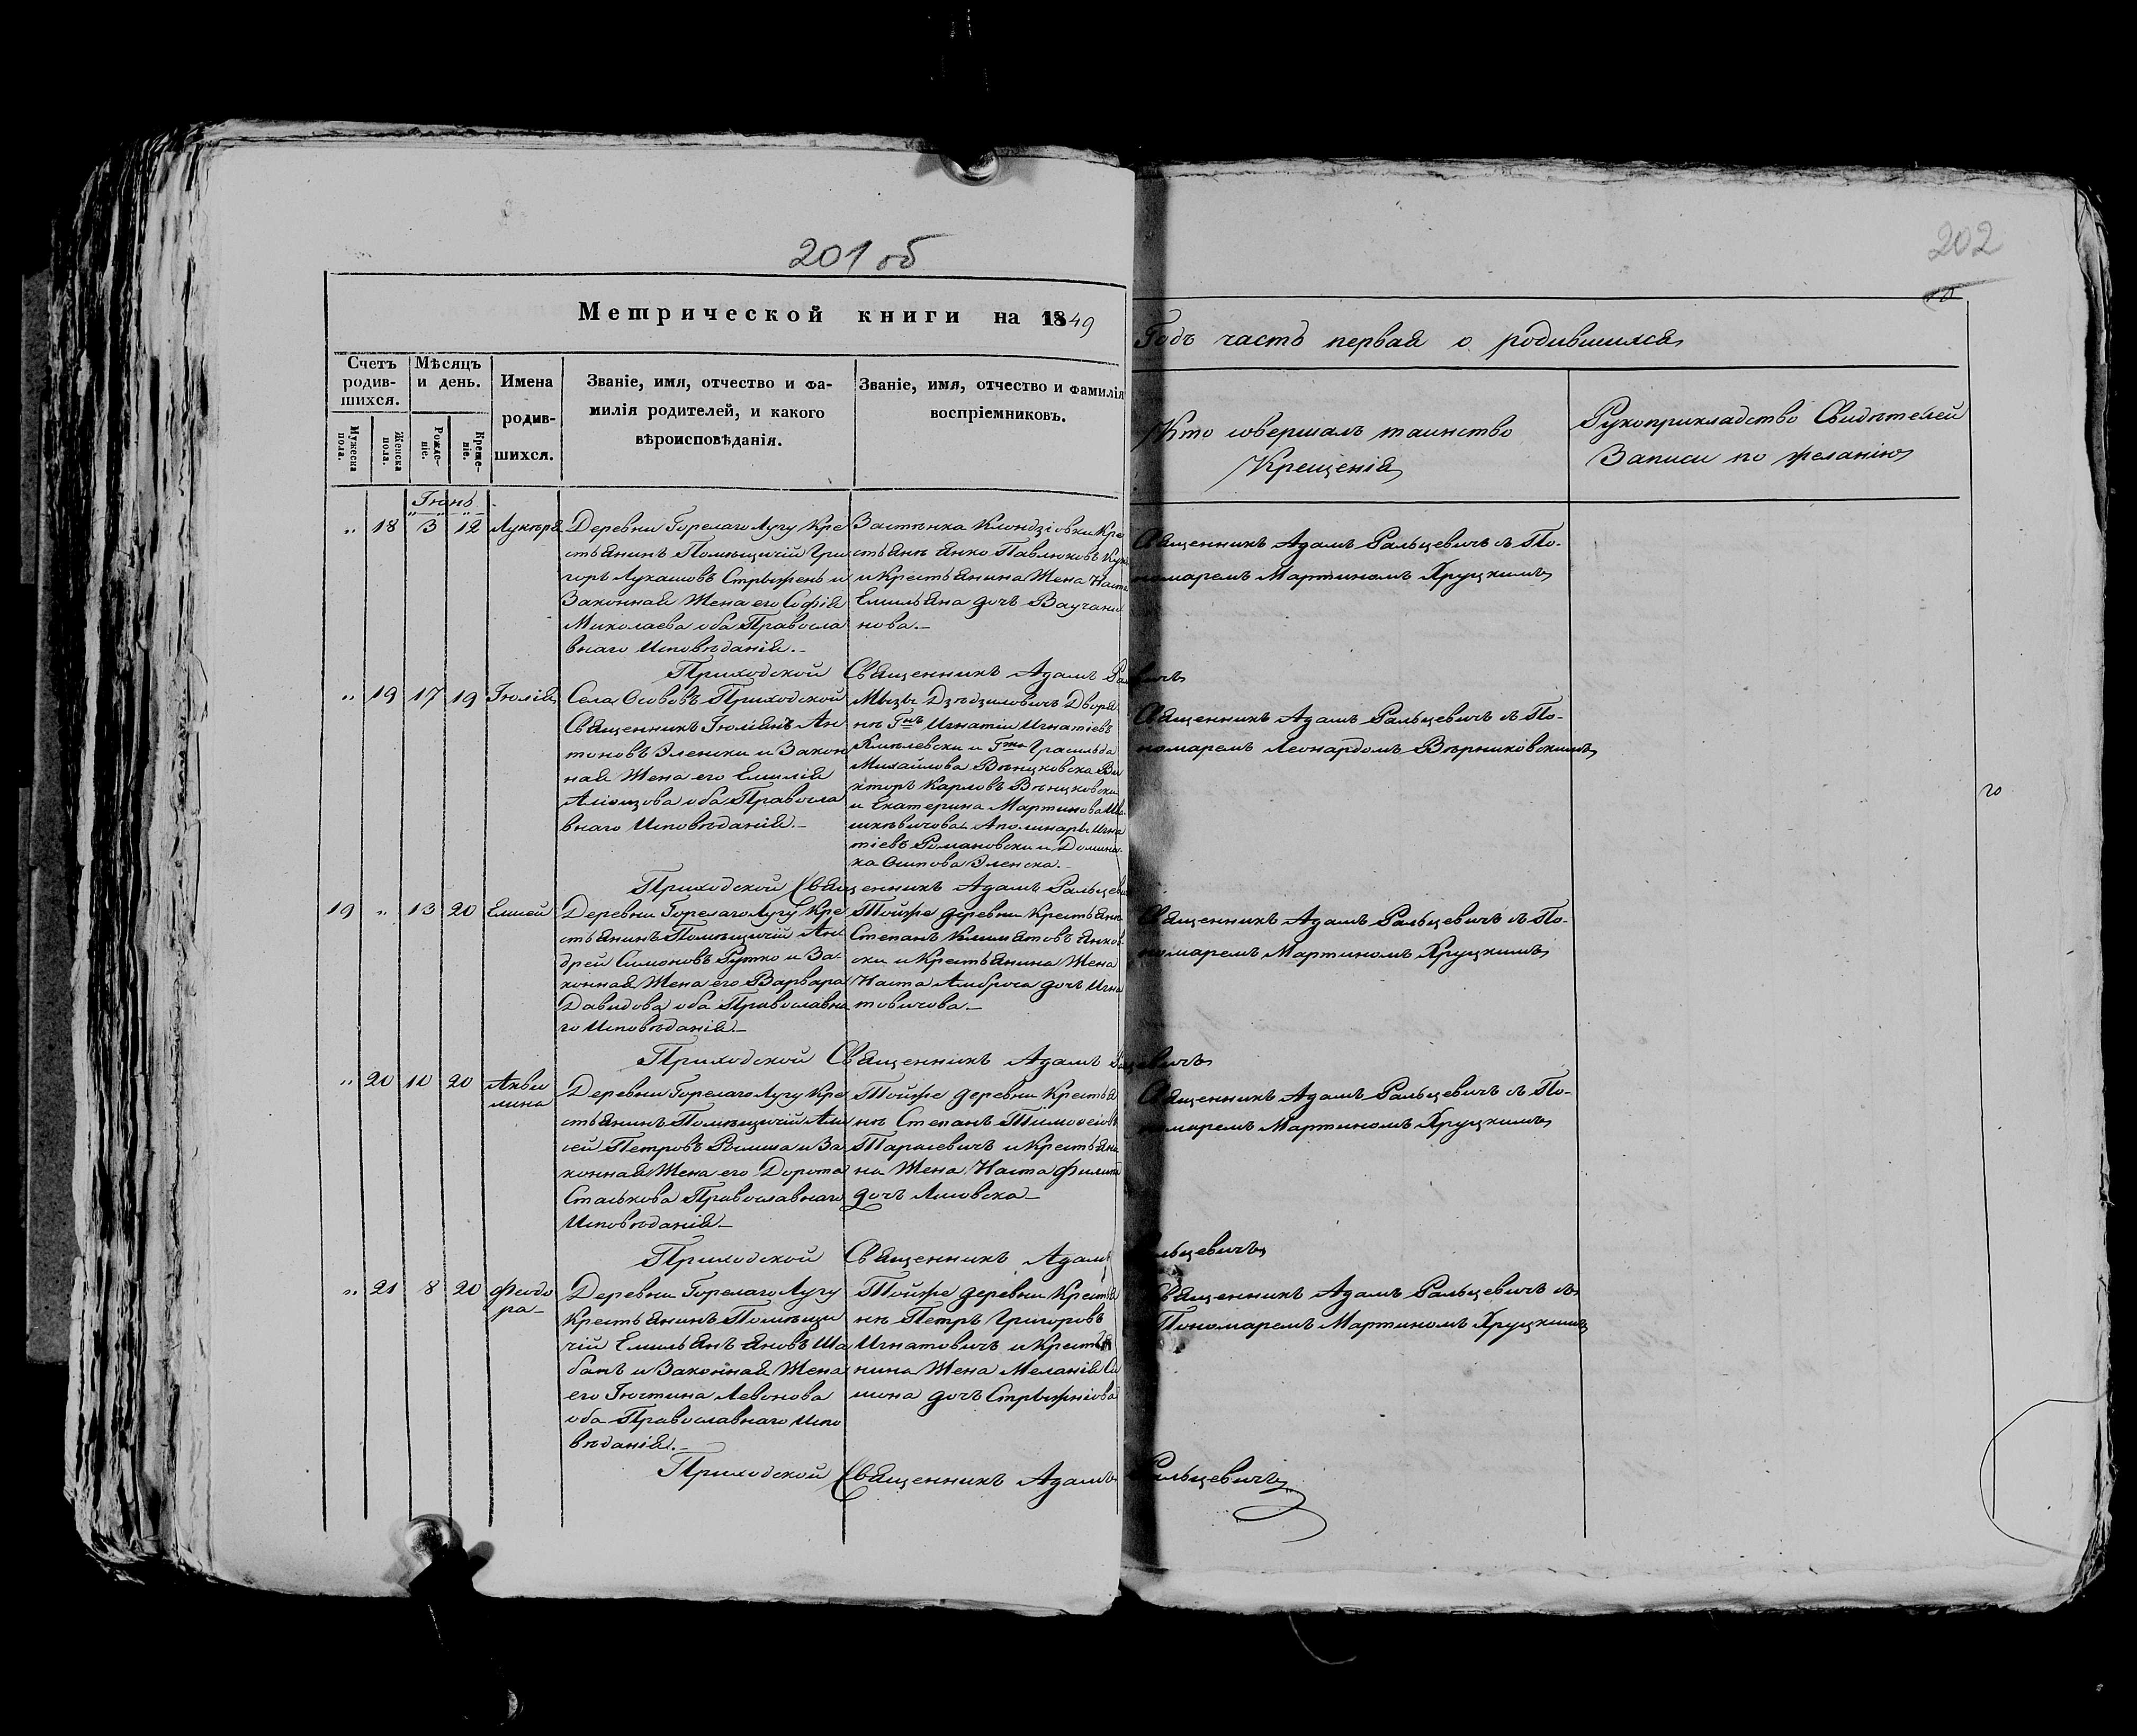 201 об
202
Метрической книги на 1849
Годъ часть первая о родившихся
Счетъ родив-шихся.
Мѣсяцъ и день.
Имена родив-шихся.
Званіе, имя, отчество и фа-
милія родителей, и какого
вѣроисповѣданія.
Званіе, имя, отчество и фамилія
воспріемниковъ.
Кто совершалъ таинство
Крещенія
Рукоприкладство Свидѣтелей
Записи по желанію
Мужеска пола.
Женска пола.
Рожде-ніе.
Креще-ніе.
Іюнь
„ 18 3 12 Лукерія
Деревни Горелаго Лугу Кре
стьянинъ Помѣщичій Гри
горъ Лукашовъ Стрыжень и
Законная Жена его Софія
Миколаева оба Правосла
внаго Исповѣданія.-
Застѣнка Клюндзіовки Кре
стьянъ Янко Павлюковъ
и Крестьянина Жена Наста
Емильяна дочь
нова.-
Священникъ Адамъ Ральцевичъ съ По-
номаремъ Мартиномъ Хруцкимъ
Приходской Священникъ Адамъ
„ 19 17 19 Іюлія
Села Ососовъ Приходской
Священникъ Іюліанъ Ан
тоновъ Эленски и Закон
ная Жена его Емилія
Алюизова оба Правосла
внаго Исповѣданія.-
Мызы Дзѣдзиловичъ Дворя
нъ Гнъ Игнатіи Игнатіевъ
Хмѣлевски и Гжа Грасильда
Михайлова Вѣнцковска Ви
кторъ Карловъ Вѣнцковски
и Екатерина Мартинова
Аполинары Игна
тіевъ Романовски и Домини
ка Осипова Эленска.-
Священникъ Адамъ Ральцевичъ съ По-
номаремъ Леонардомъ Вѣрниковскимъ
Приходской Священникъ Адамъ Ральцеви
19 „ 13 20 Елисей
Деревни Горелаго Лугу Кре
стьянинъ Помѣщичій Ан
дрей Симоновъ Рутко и За-
конная Жена его Варвара
Давидова оба Православна
го Исповѣданія.-
Тойже деревни Крестьян
Степанъ Климятовъ Янков
ски и Крестьянина Жена
Наста Амброса дочь Игна
товичова.-
Священникъ Адамъ Ральцевичъ съ По-
номаремъ Мартиномъ Хруцкимъ
Приходской Священникъ Адамъ Ральцевичъ
„ 20 10 20 Акви
лина
Деревни Горелаго Лугу Кре
стьянинъ Помѣщичій Али
сей Петровъ и За
конная Жена его Дорота
Сталькова Православнаго
Исповѣданія.-
Тойже деревни Крестья
нъ Степанъ Тимоѳеіовъ
Тарасевичъ и Крестьяни
на Жена Наста Филипа
дочь Лисовска-
Священникъ Адамъ Ральцевичъ съ По-
номаремъ Мартиномъ Хруцкимъ
Приходской Священникъ Адамъ Ральцевичъ
„ 21 8 20 Ѳеодо
ра-
Деревни Горелаго Лугу
Крестьянинъ Помѣщи
чій Емильянъ Яновъ Ша
банъ и Законная Жена
его Іюстина Левонова
оба Православнаго Испо
вѣданія.-
Тойже деревни Крестья
нъ Петръ Григоровъ
Игнатовичъ и Крестья
нина Жена Меланія Си
мона дочь Стрыжніова
Священникъ Адамъ Ральцевичъ съ
Пономаремъ Мартиномъ Хруцкимъ
Приходской Священникъ Адамъ Ральцевичъ
го